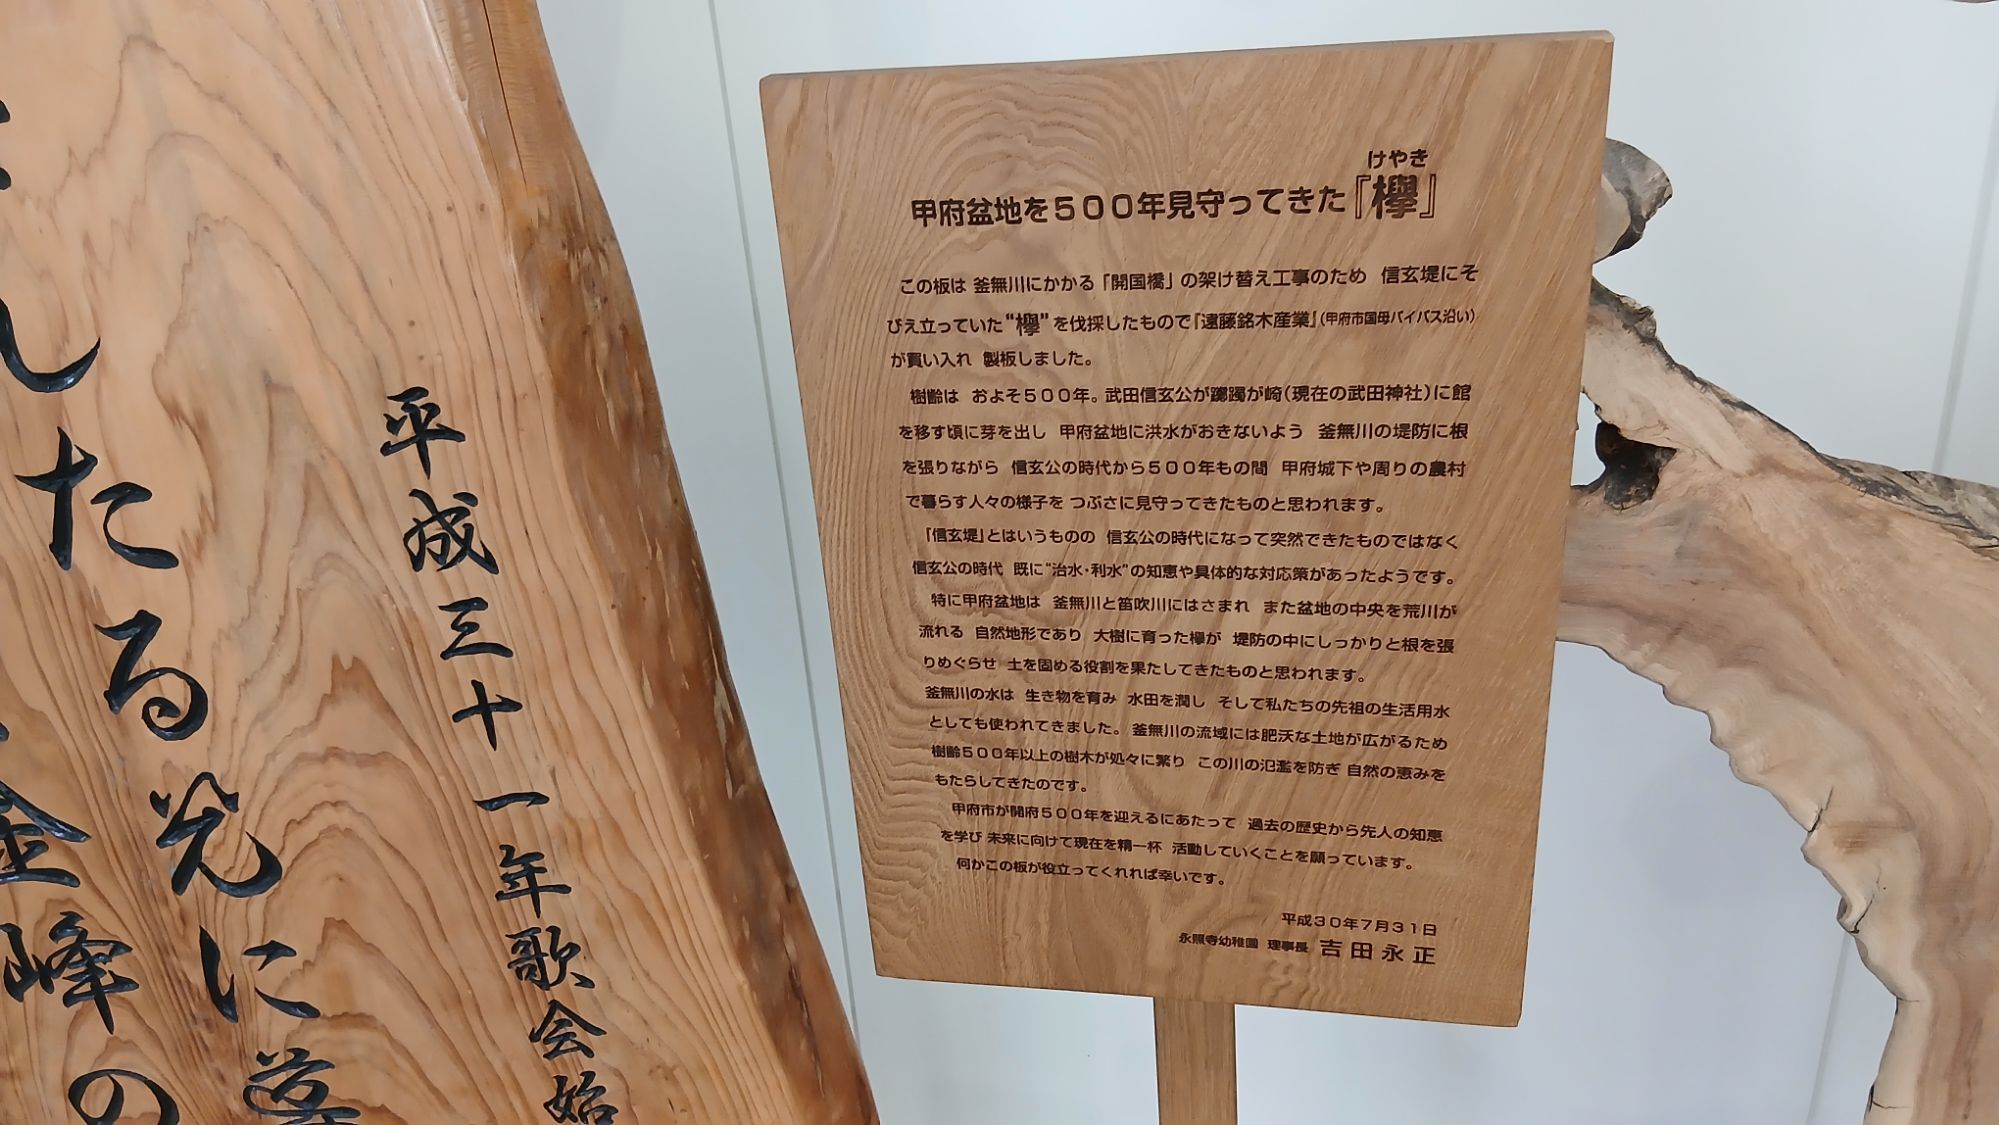 したる光に
金峰の
平成三十一年歌会始
けやき
甲府盆地を500年見守ってきた『欅』
この板は 釜無川にかかる「開国橋」の架け替え工事のため 信玄堤にそ
びえ立っていた“欅”を伐採したもので『遠藤銘木産業』(甲府市国母バイパス沿い)
が買い入れ 製板しました。
樹齢は およそ500年。武田信玄公が躑躅が崎(現在の武田神社)に館
を移す頃に芽を出し 甲府盆地に洪水がおきないよう 釜無川の堤防に根
を張りながら 信玄公の時代から500年もの間 甲府城下や周りの農村
で暮らす人々の様子を つぶさに見守ってきたものと思われます。
「信玄堤」とはいうものの 信玄公の時代になって突然できたものではなく
信玄公の時代 既に“治水・利水”の知恵や具体的な対応策があったようです。
特に甲府盆地は 釜無川と笛吹川にはさまれ また盆地の中央を荒川が
流れる 自然地形であり 大樹に育った欅が 堤防の中にしっかりと根を張
りめぐらせ 土を固める役割を果たしてきたものと思われます。
釜無川の水は 生き物を育み 水田を潤し そして私たちの先祖の生活用水
としても使われてきました。釜無川の流域には肥沃な土地が広がるため
樹齢500年以上の樹木が処々に繁り この川の氾濫を防ぎ 自然の恵みを
もたらしてきたのです。
甲府市が開府500年を迎えるにあたって 過去の歴史から先人の知恵
を学び 未来に向けて現在を精一杯 活動していくことを願っています。
何かこの板が役立ってくれれば幸いです。
平成30年7月31日
永照寺幼稚園 理事長 吉田永正